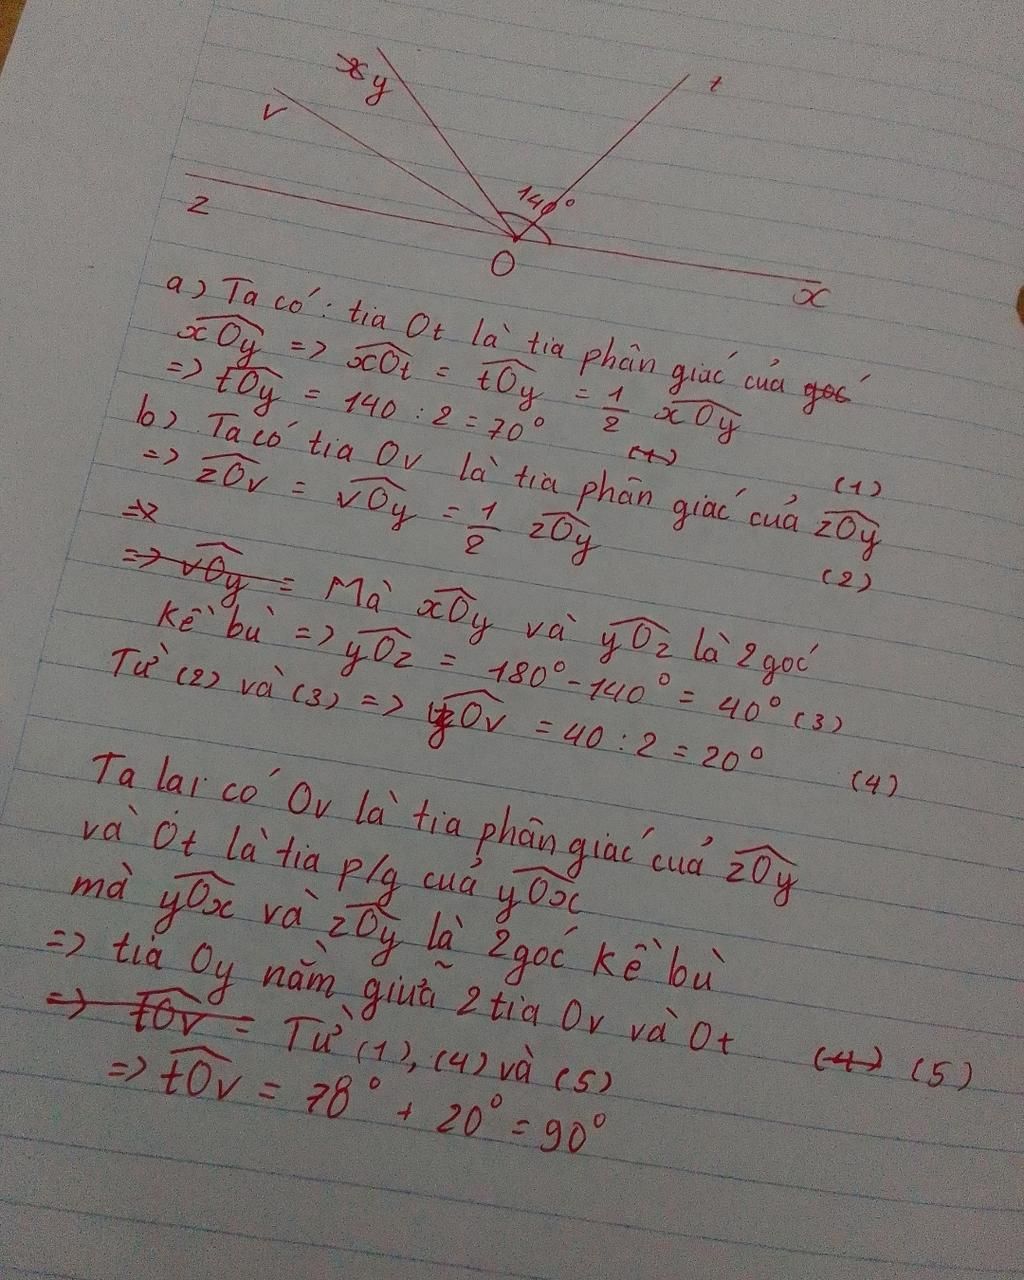 xy
t
v
z
140°
O
x
a) Ta có: tia Ot là tia phân giác của góc
xOy => xOt = tOy = 1/2 xOy
=> tOy = 140 : 2 = 70° (1)
b) Ta có tia Ov là tia phân giác của zOy
=> zOv = vOy = 1/2 zOy (2)
=> vOy = Mà xOy và yOz là 2 góc
kề bù => yOz = 180° - 140° = 40° (3)
Từ (2) và (3) => yOv = 40 : 2 = 20° (4)
Ta lại có Ov là tia phân giác của zOy
và Ot là tia p/g của yOx
mà yOx và zOy là 2 góc kề bù
=> tia Oy nằm giữa 2 tia Ov và Ot (4) (5)
=> tOv = Từ (1), (4) và (5)
=> tOv = 78° + 20° = 90°